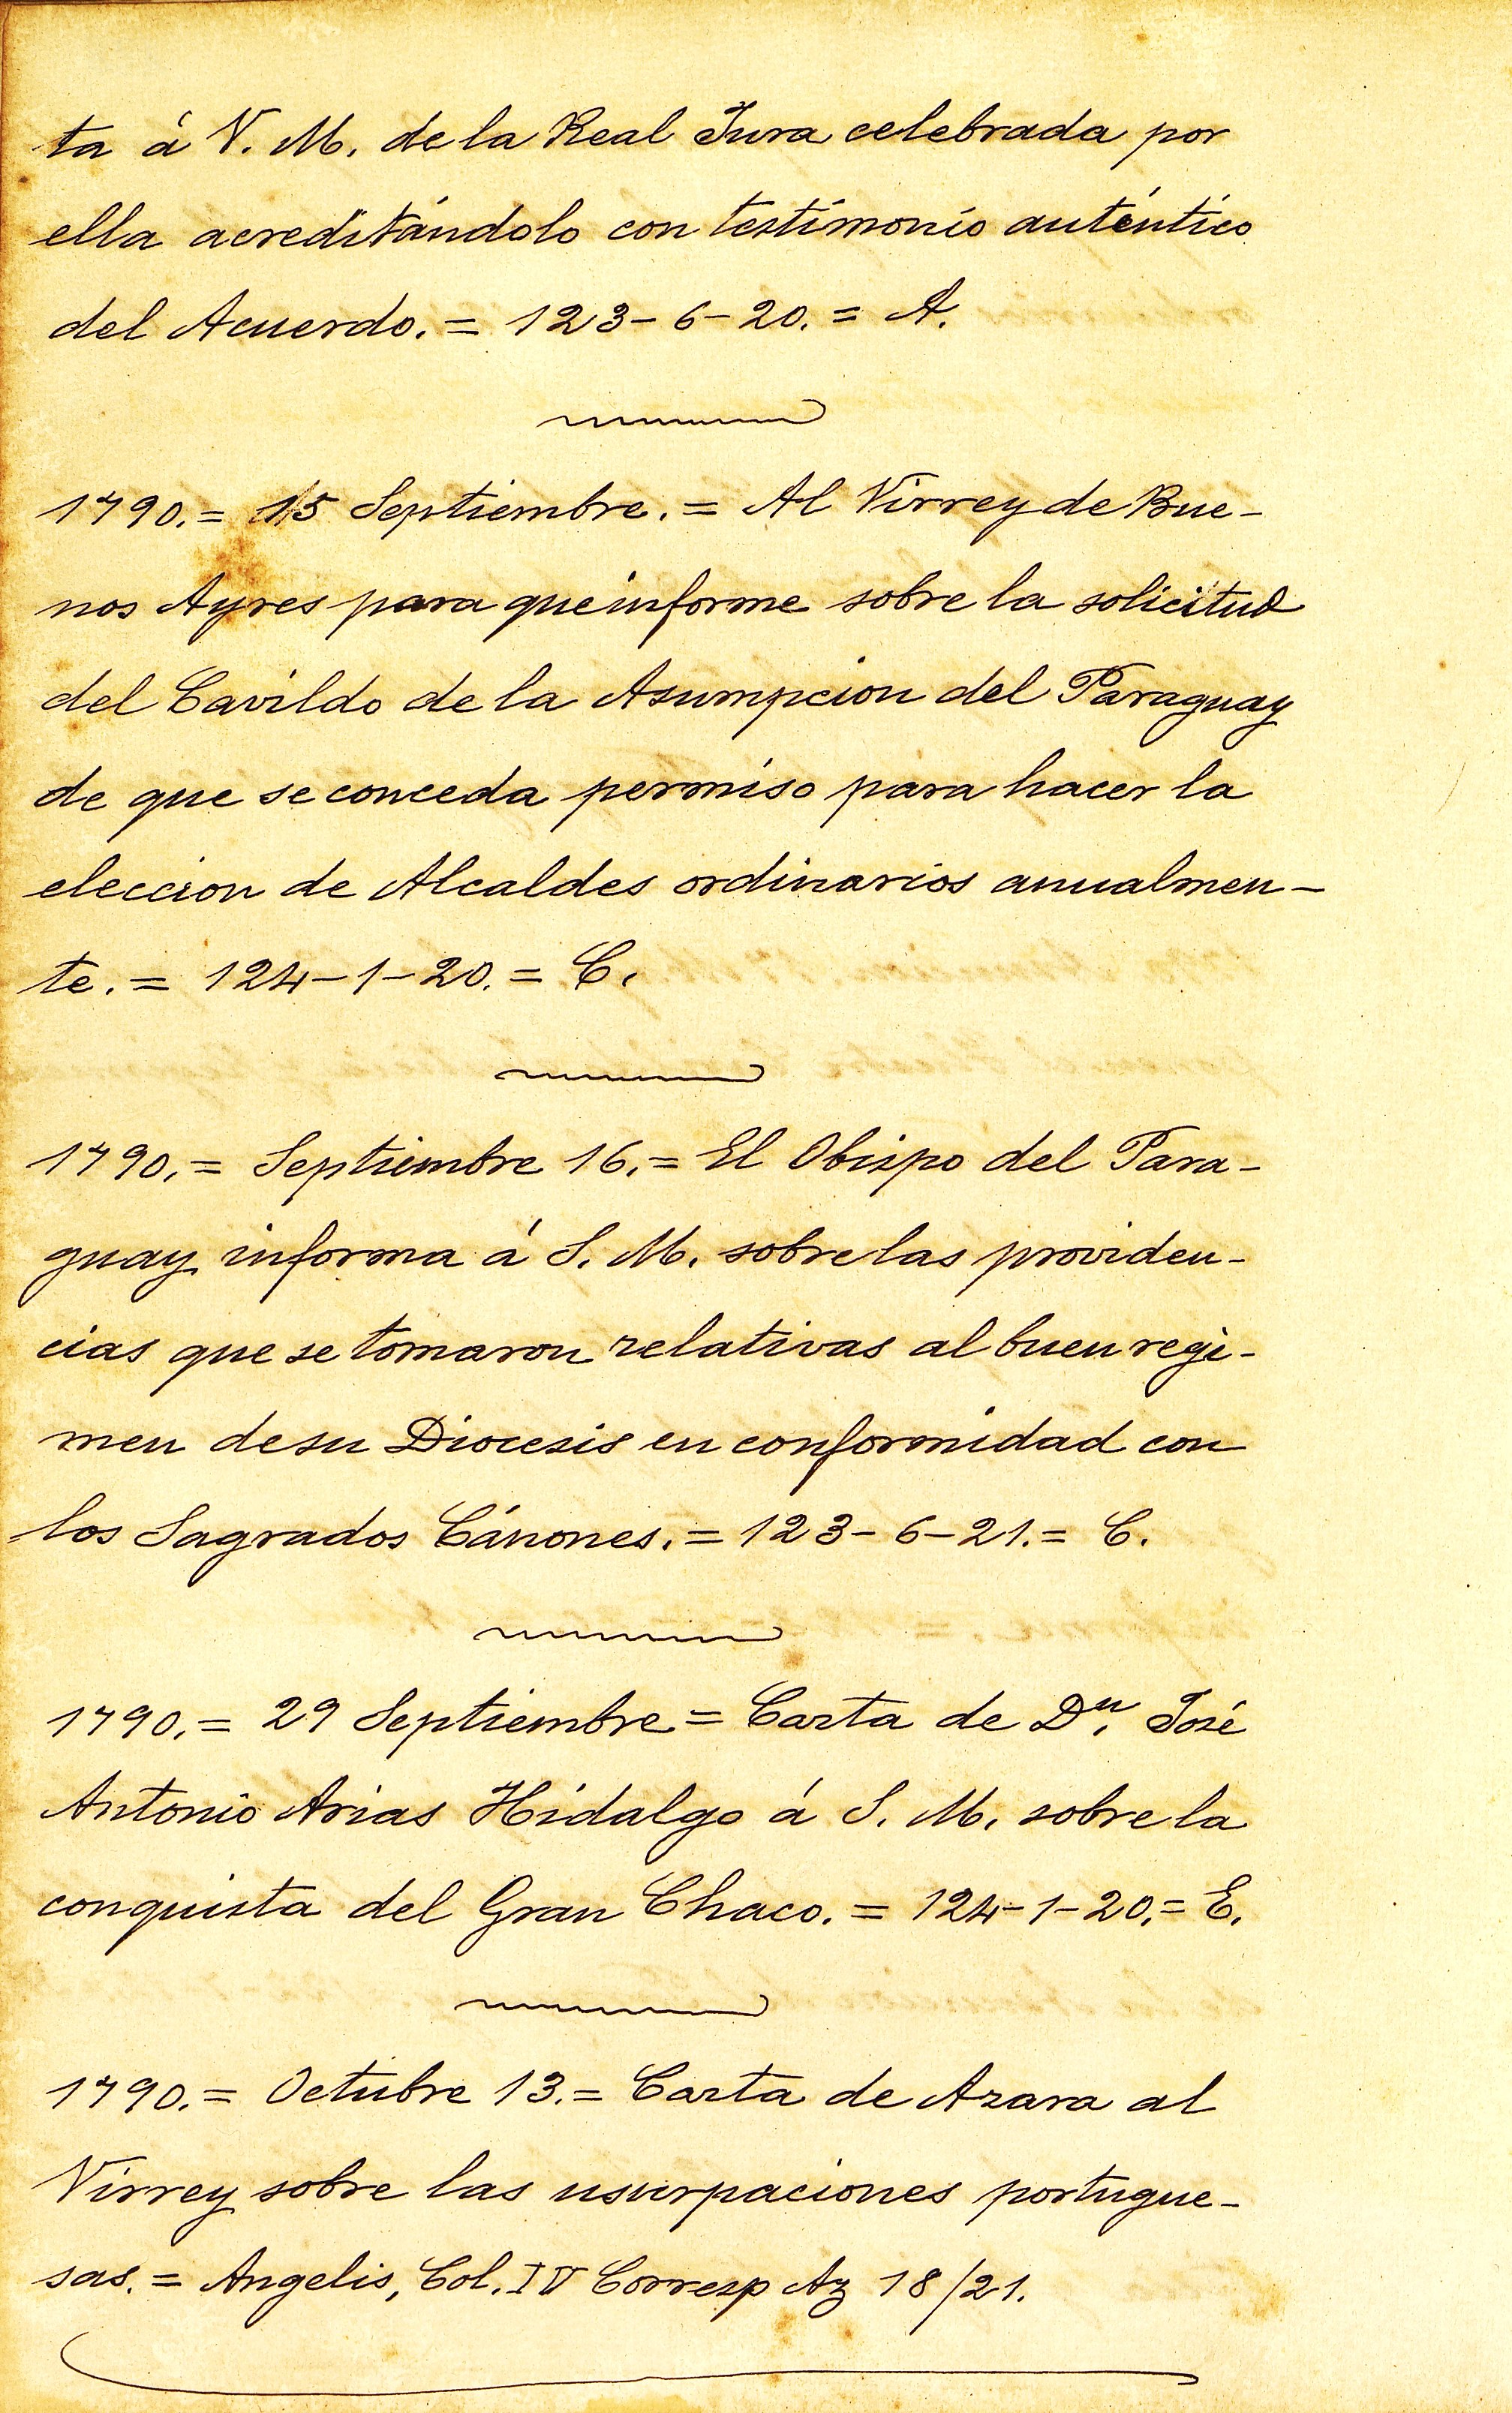 ta á V. M. de la Real Jura celebrada por
ella acreditándolo con testimonio auténtico
del Acuerdo. = 123-6-20. = A.
1790. = 15 Septiembre. = Al Virrey de Bue-
nos Ayres para que informe sobre la solicitud
del Cavildo de la Asumpcion del Paraguay
de que se conceda permiso para hacer la
eleccion de Alcaldes ordinarios anualmen-
te. = 124-1-20. = C.
1790. = Septiembre 16. = El Obispo del Para-
guay informa á S. M. sobre las providen-
cias que se tomaron relativas al buen regi-
men de su Diocesis en conformidad con
los Sagrados Cánones. = 123-6-21. = C.
1790. = 29 Septiembre = Carta de Dn. José
Antonio Arias Hidalgo á S. M. sobre la
conquista del Gran Chaco. = 124-1-20. = E.
1790. = Octubre 13. = Carta de Azara al
Virrey sobre las usurpaciones portugue-
sas. = Angelis, Col. IV Corresp Az 18/21.